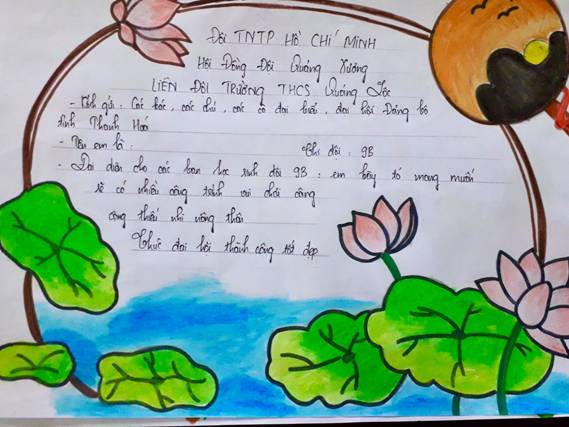 Đội TNTP HỒ CHÍ MINH
Hội Đồng Đội Quảng Xương
LIÊN ĐỘI TRƯỜNG THCS Quảng Lộc
- Kính gửi: Các bác, các chú, các cô đại biểu, đại hội Đảng bộ
tỉnh Thanh Hoá
- Tên em là: Chi đội: 9B
- Đại diện cho các bạn học sinh đội 9B: em bày tỏ mong muốn
sẽ có nhiều công trình vui chơi công
cộng thiếu nhi nông thôn
Chúc đại hội thành công tốt đẹp